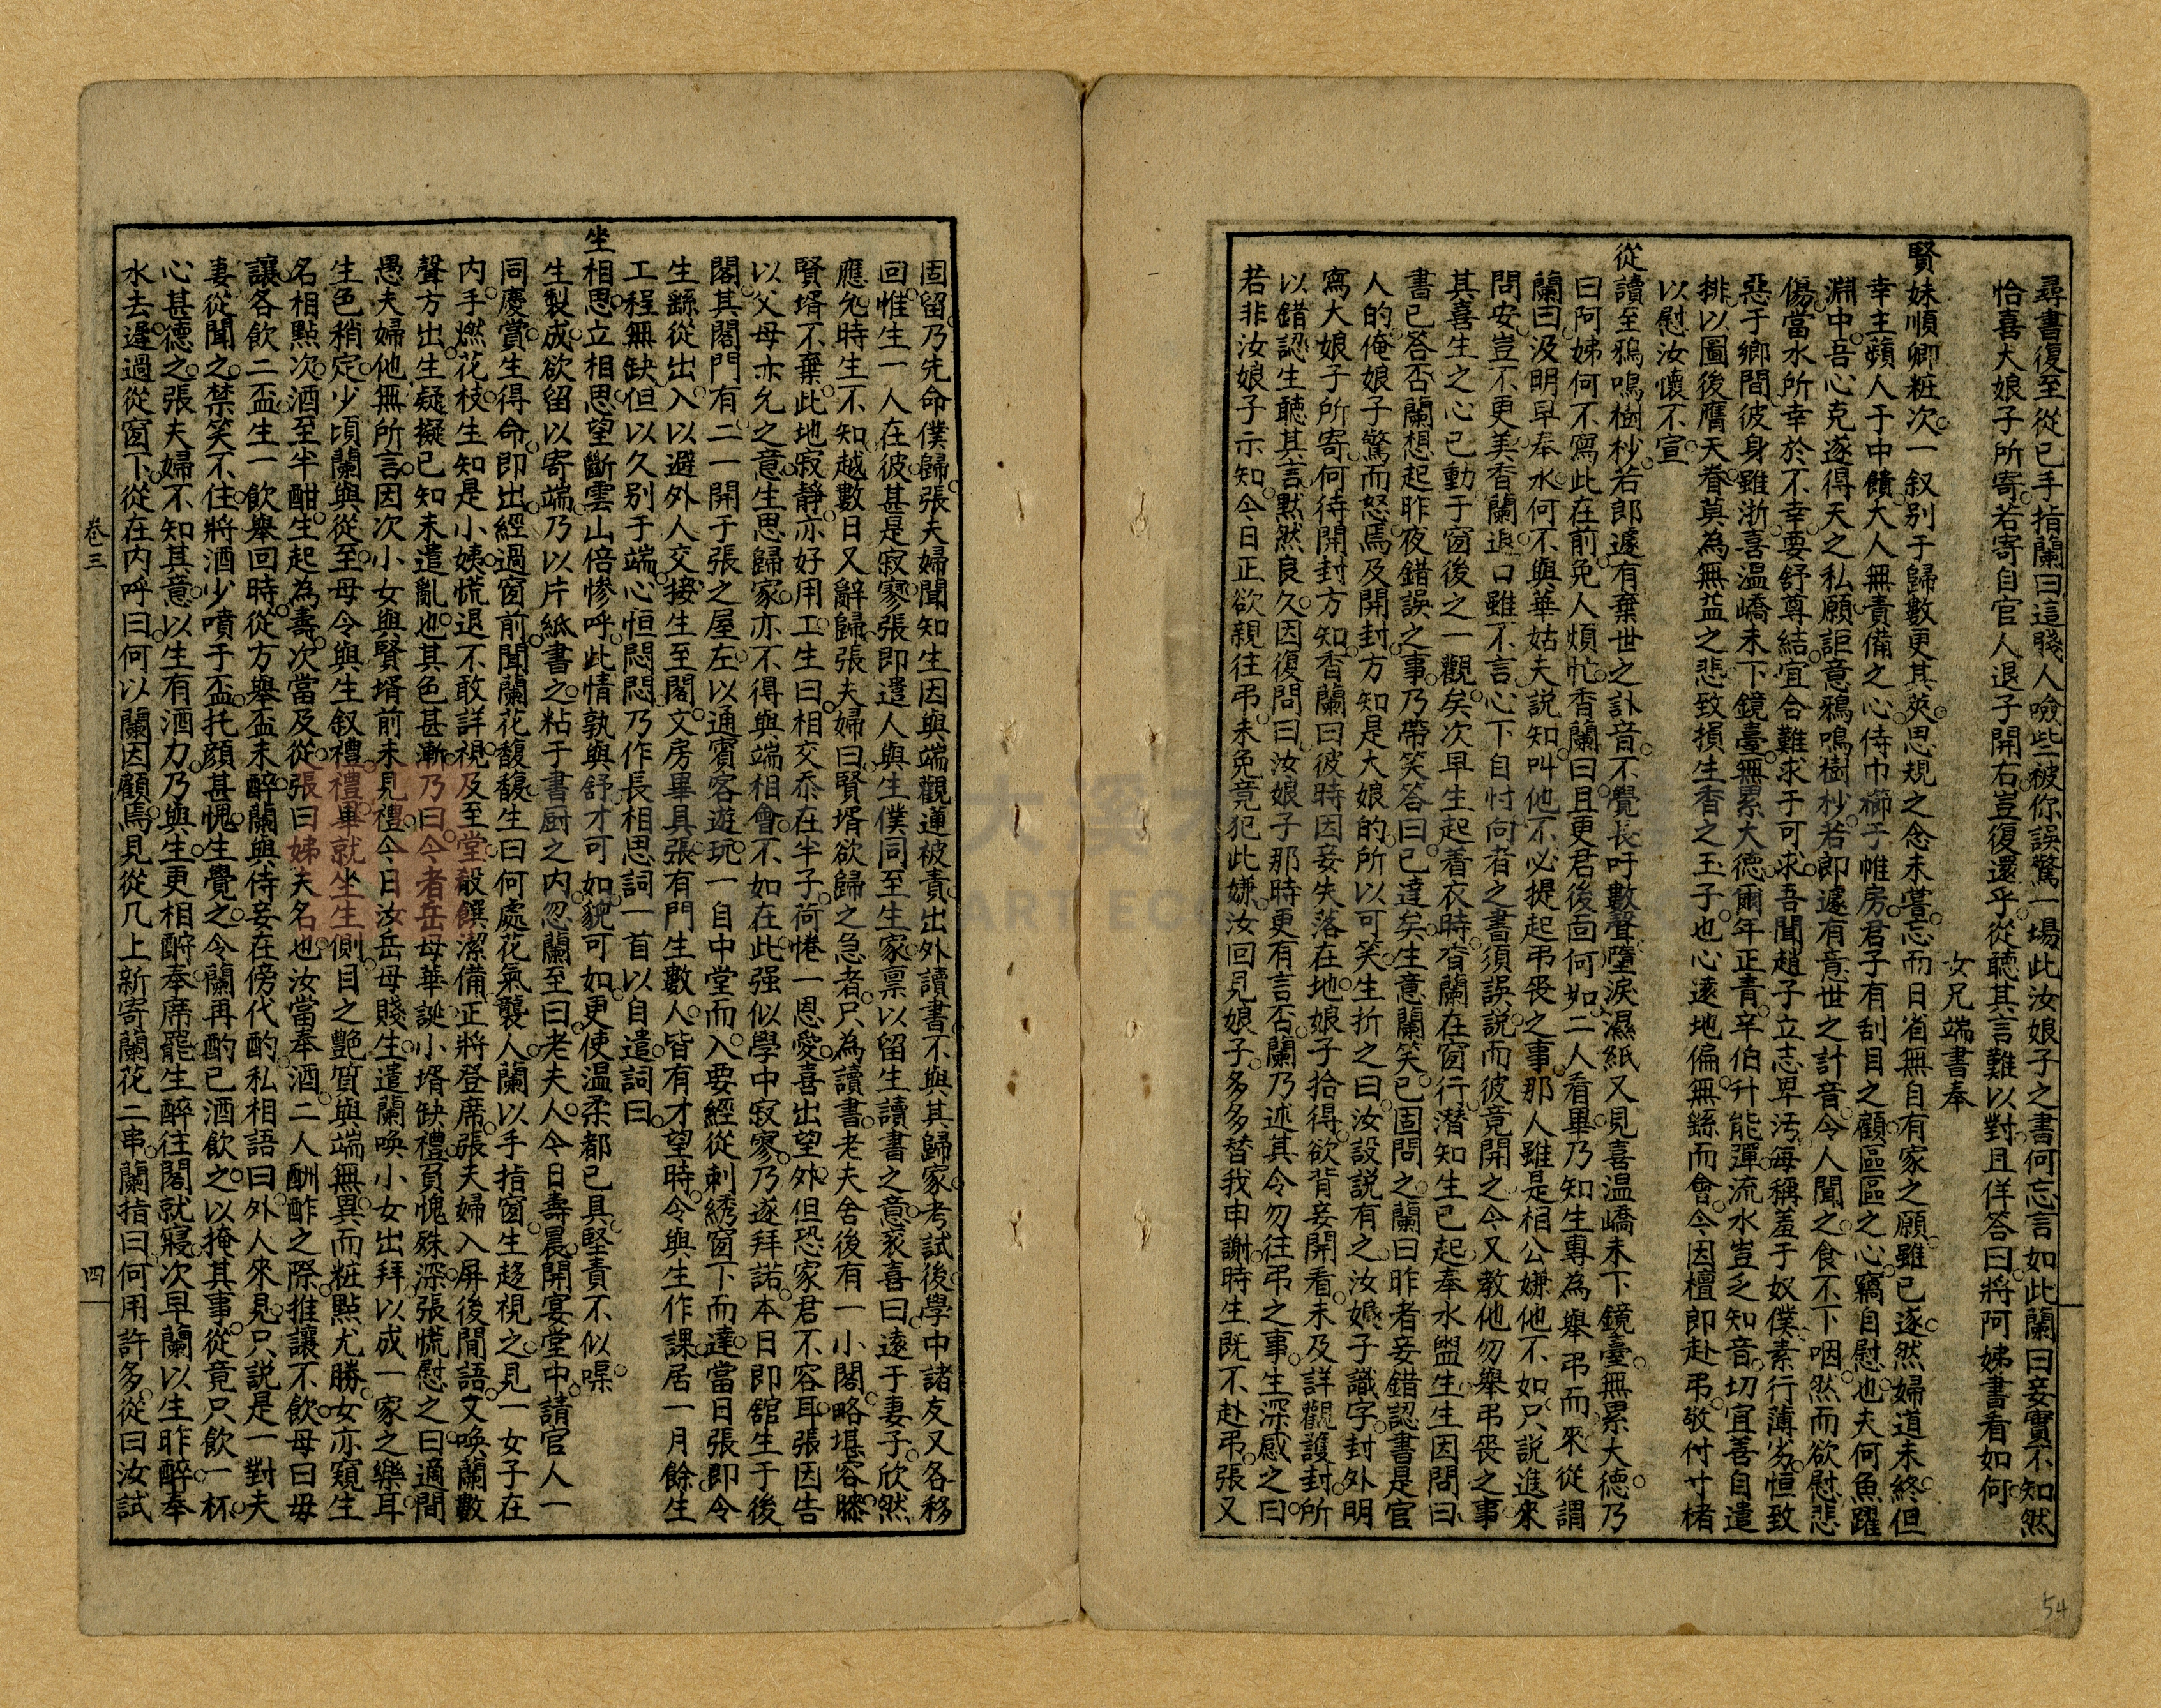 尋書復至從已手指蘭曰這賤人噞些被你誤驚一場此汝娘子之書何忘言如此蘭曰妾實不知然
恰喜大娘子所寄若寄自官人退子開右豈復還乎從聽其言難以對且佯答曰將阿姊書看如何
女兄端書奉
賢妹順卿粧次一叙别于歸數更其莢思規之念未嘗忘而日省無自有家之願雖已遂然婦道未終但
幸主蘋人于中饋大人無責備之心侍巾櫛于帷房君子有刮目之顧區區之心竊自慰也夫何魚躍
淵中吾心克遂得天之私願詎意鴉鳴樹杪若郎遽有意世之計音令人聞之食不下咽然而欲慰悲
傷當水所幸於不幸要舒尊結宜合難求于可求吾聞趙子立志卑汚每稱羞于奴僕素行薄劣恒致
惡于鄉間彼身雖浙喜温嶠未下鏡臺無累大德爾年正青辛伯升能彈流水豈乏知音切宜善自遣
排以圖後膺天眷莫為無益之悲致損生香之玉子也心遠地偏無繇而會今因檀即赴弔敬付寸楮
以慰汝懷不宣
從讀至鴉鳴樹杪若郎遽有棄世之訃音不覺長吁數聲墮淚濕紙又見喜温嶠未下鏡臺無累大德乃
曰阿姊何不寫此在前免人煩忙香蘭曰且更君後面何如二人看畢乃知生專為舉弔而來從謂
蘭曰汲明早奉水何不與華姑夫説知叫他不必提起弔丧之事那人雖是相公嫌他不如只説進來
問安豈不更美香蘭退口雖不言心下自忖向者之書須誤説而彼竟開之今又教他勿舉弔丧之事
其喜生之心已動于窗後之一觀矣次早生起着衣時香蘭在窗行潜知生已起奉水盥生生因問曰
書已答否蘭想起昨夜錯誤之事乃帶笑答曰已達矣生意蘭笑已固問之蘭曰昨者妾錯認書是官
人的俺娘子驚而怒焉及開封方知是大娘的所以可笑生折之曰汝設説有之汝娘子識字封外明
寫大娘子所寄何待開封方知香蘭曰彼時因妾失落在地娘子拾得欲背妾開看未及詳觀護封所
以錯認生聽其言默然良久因復問曰汝娘子那時更有言否蘭乃述其令勿往弔之事生深感之曰
若非汝娘子示知今日正欲親往弔未免竟犯此嫌汝回見娘子多多替我申謝時生既不赴弔張又
固留乃先命僕歸張夫婦聞知生因與端觀運被責出外讀書不與其歸家考試後學中諸友又各移
回惟生一人在彼甚是寂寥張即遣人與生僕同至生家禀以留生讀書之意衮喜曰遠于妻子欣然
應允時生不知越數日又辭歸張夫婦曰賢壻欲歸之急者只為讀書老夫舍後有一小閣略堪容膝
賢壻不棄此地寂靜亦好用工生曰相交忝在半子荷惓一恩愛喜出望外但恐家君不容耳張因告
以父母亦允之意生思歸家亦不得與端相會不如在此强似學中寂寥乃遂拜諾本日即舘生于後
閣其閣門有二一開于張之屋左以通賓客遊玩一自中堂而入要經從刺綉窗下而達當日張即令
生繇從出入以避外人交接生至閣文房畢具張有門生數人皆有才望時令與生作課居一月餘生
工程無缺但以久别于端心恒悶悶乃作長相思詞一首以自遣詞曰
坐相思立相思望斷雲山倍慘呼此情孰與舒才可如貌可如更使温柔都已具堅責不似㗖
生製成欲留以寄端乃以片紙書之粘于書厨之内忽蘭至曰老夫人今日壽晨開宴堂中請官人一
同慶賞生得命即出經過窗前聞蘭花馥馥生曰何處花氣襲人蘭以手指窗生趍視之見一女子在
内手燃花枝生知是小姨慌退不敢詳視及至堂殽饌潔備正將登席張夫婦入屏後閒語文喚蘭數
聲方出生疑擬已知未遣亂也其色甚漸乃曰今者岳母華誕小壻缺禮負愧殊深張慌慰之曰適間
愚夫婦他無所言因次小女與賢壻前未見禮今日汝岳母賤生遣蘭喚小女出拜以成一家之樂耳
生色稍定少頃蘭與從至母令與生叙禮禮畢就坐生側目之艶質與端無異而粧點尤勝女亦窺生
名相點次酒至半酣生起為壽次當及從張曰姊夫名也汝當奉酒二人酬酢之際推讓不飲母曰毋
讓各飲二盃生一飲舉回時從方舉盃未醉蘭與侍妾在傍代酌私相語曰外人來見只説是一對夫
妻從聞之禁笑不住將酒少噴于盃托顔甚愧生覺之令蘭再酌已酒飲之以掩其事從竟只飲一杯
心甚德之張夫婦不知其意以生有酒力乃與生更相酹奉席罷生醉往閣就寢次早蘭以生昨醉奉
水去遲過從窗下從在内呼曰何以蘭因顧焉見從几上新寄蘭花二串蘭指曰何用許多從曰汝試
卷三
四
54